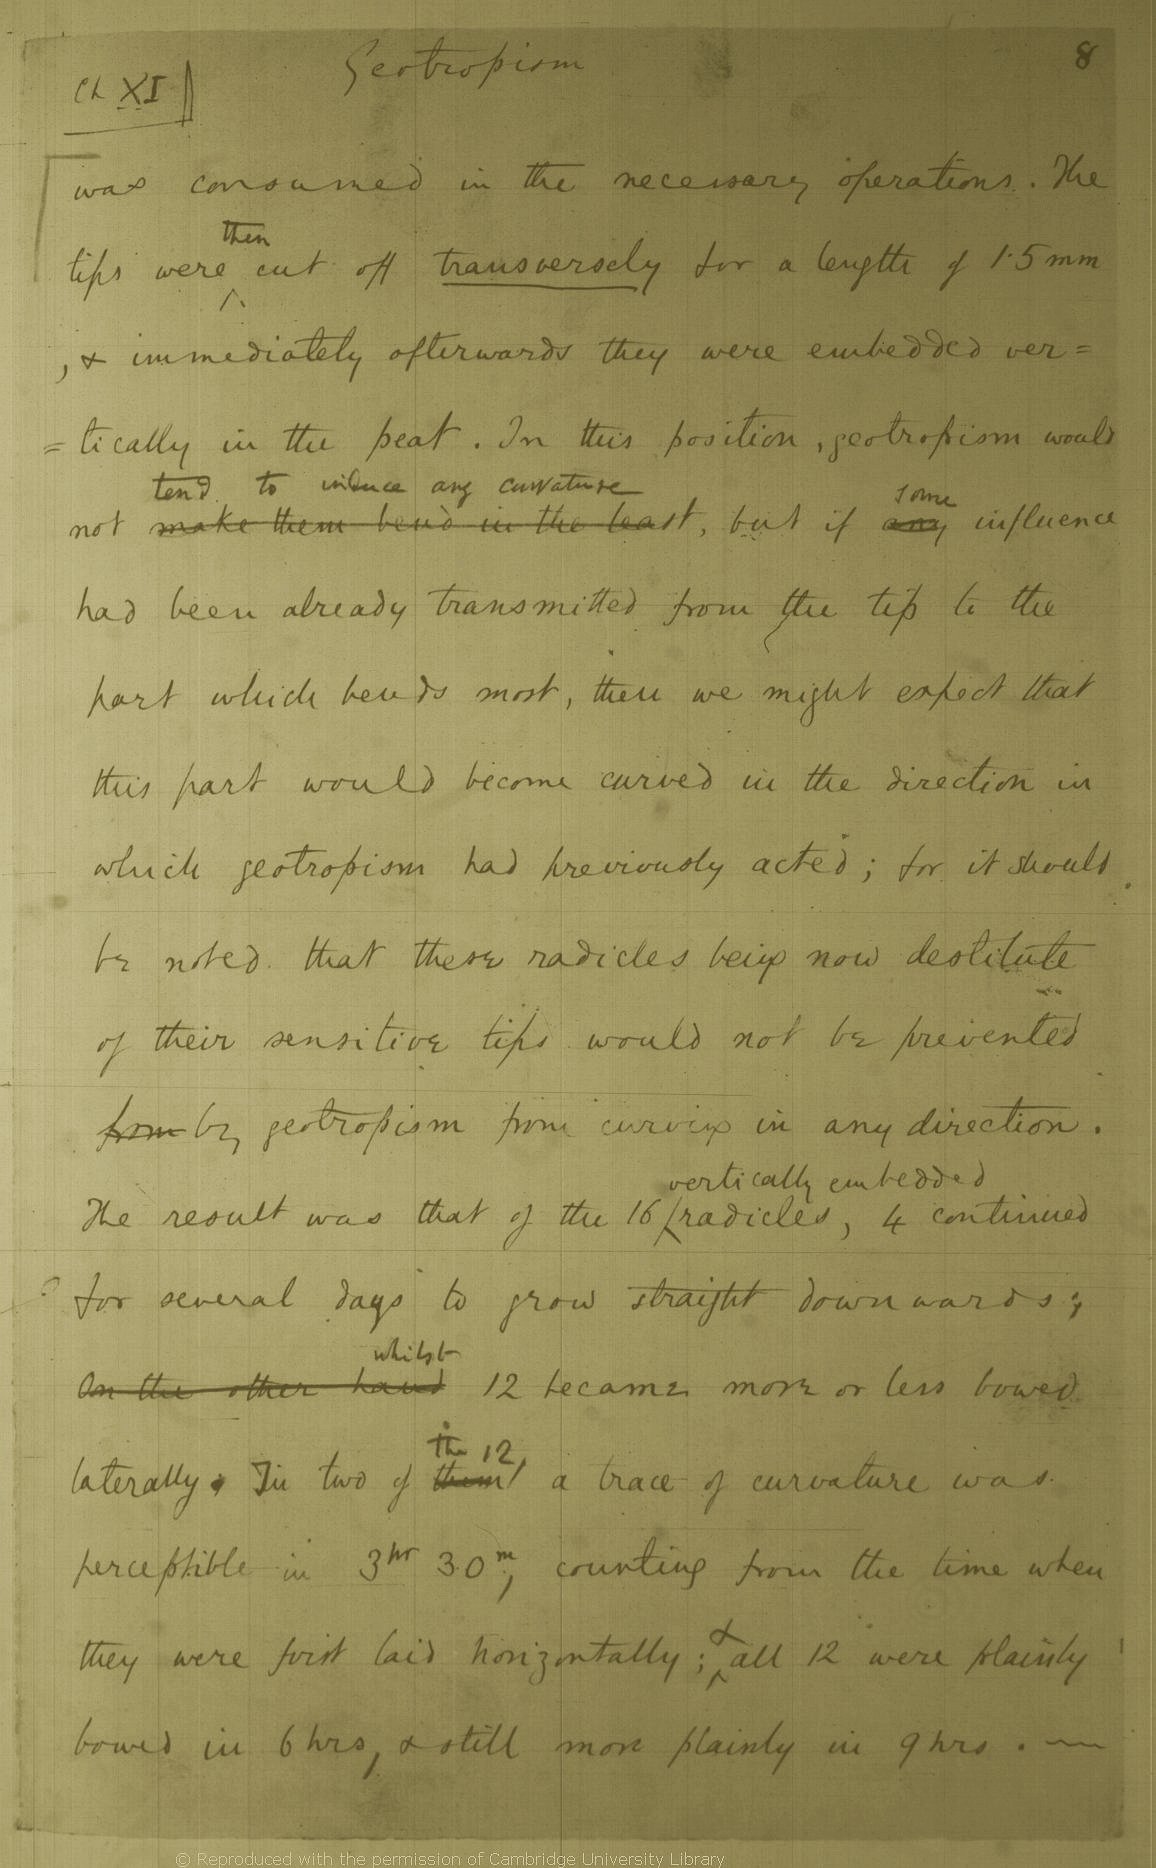 Ch XI
Geotropism
8
was consumed in the necessary operations. The
then
tips were cut off transversely for a length of 1.5 mm
, & immediately afterwards they were embedded ver=
=tically in the peat. In this position, geotropism would
tend to induce any curvature
some
not make them bend in the least, but if any influence
had been already transmitted from the tip to the
part which bends most, then we might expect that
this part would become curved in the direction in
which geotropism had previously acted; for it should
be noted that these radicles being now destitute
of their sensitive tips would not be prevented
from by geotropism from curving in any direction.
vertically embedded
The result was that of the 16 radicles, 4 continued
for several days to grow straight downwards;
whilst
On the other hand 12 became more or less bowed
the 12,
laterally. In two of them a trace of curvature was
perceptible in 3hr 30m, counting from the time when
&
they were first laid horizontally; all 12 were plainly
bowed in 6 hrs, & still more plainly in 9 hrs. —
© Reproduced with the permission of Cambridge University Library